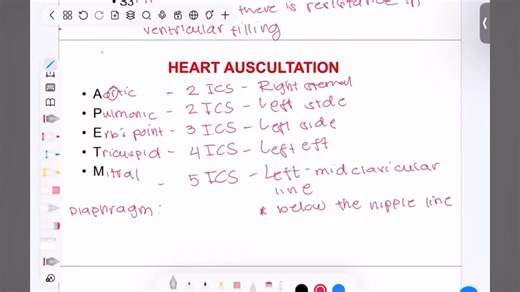 S3
there is resistance in
ventricular filling
HEART AUSCULTATION
• Aortic - 2 ICS - Right sternal
• Pulmonic - 2 ICS - Left side
• Erb's point - 3 ICS - Left side
• Tricuspid - 4 ICS - Left left
• Mitral - 5 ICS - Left - midclavicular
line
Diaphragm: * below the nipple line